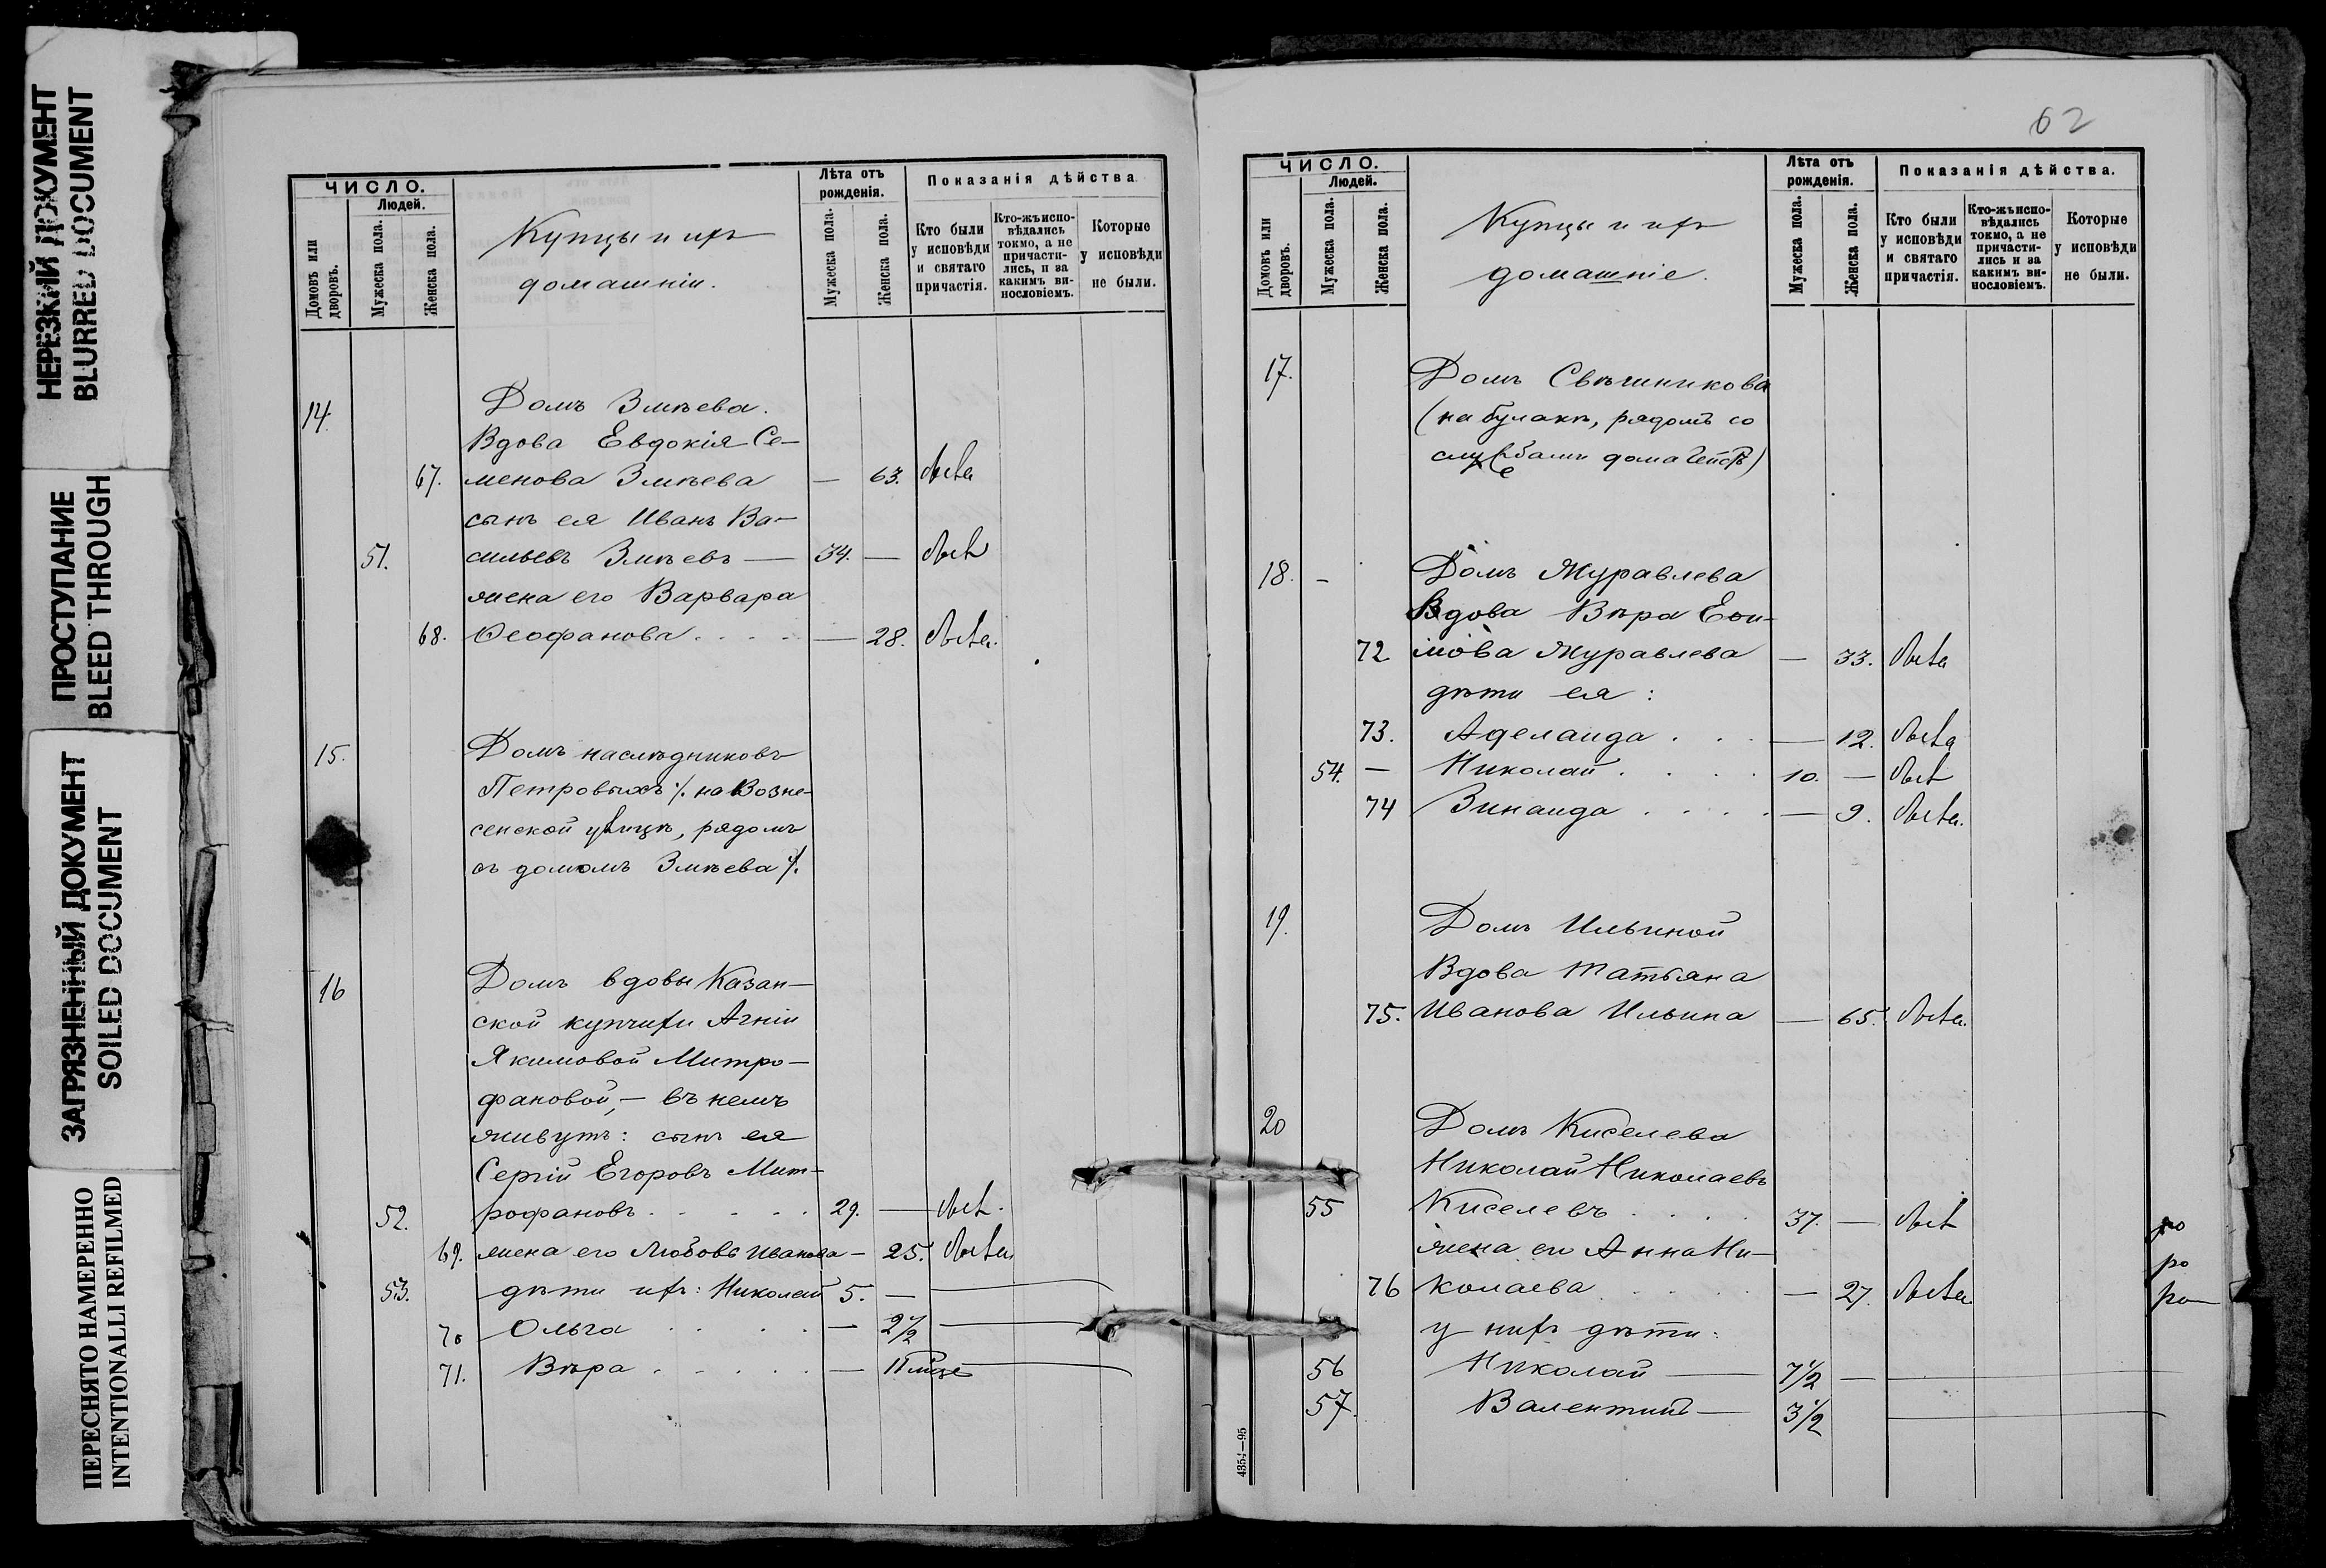 НЕРЕЗКИЙ ДОКУМЕНТ
BLURRED DOCUMENT
ПРОСТУПАНИЕ
BLEED THROUGH
ЗАГРЯЗНЕННЫЙ ДОКУМЕНТ
SOILED DOCUMENT
ПЕРЕСНЯТО НАМЕРЕННО
INTENTIONALLI REFILMED
ЧИСЛО.
Людей.
Домовъ или дворовъ.
Мужеска пола.
Женска пола.
Купцы и ихъ
домашніи.
Лѣта отъ
рожденія.
Мужеска пола.
Женска пола.
Показанія дѣйства
Кто были
у исповѣди
и святаго
причастія.
Кто-жъ испо-
вѣдались
токмо, а не
причасти-
лись, и за
какимъ ви-
нословіемъ.
Которые
у исповѣди
не были.
14. Домъ Змѣева.
Вдова Евдокія Се-
67. менова Змѣева — 63. была
сынъ ея Иванъ Ва-
51. сильевъ Змѣевъ — 34. — былъ
жена его Варвара
68. Ѳеофанова . . . . — 28. была.
15. Домъ наслѣдниковъ
Петровыхъ ./. на Возне-
сенской улицѣ, рядомъ
съ домомъ Змѣева ./.
16 Домъ вдовы Казан-
ской купчихи Агніи
Якимовой Митро-
фановой, — въ немъ
живутъ: сынъ ея
Сергій Егоровъ Мит-
52. рофановъ . . . . . 29. — былъ.
69. жена его Любовь Иванова — 25. была
53. дѣти ихъ: Николай 5. —
70 Ольга . . . . — 2 1/2
71. Вѣра . . . . . — 11 мѣс
62
ЧИСЛО.
Людей.
Домовъ или дворовъ.
Мужеска пола.
Женска пола.
Купцы и ихъ
домашніе.
Лѣта отъ
рожденія.
Мужеска пола.
Женска пола.
Показанія дѣйства.
Кто были
у исповѣди
и святаго
причастія.
Кто-жъ испо-
вѣдались
токмо, а не
причасти-
лись и за
какимъ ви-
нословіемъ.
Которые
у исповѣди
не были.
17. Домъ Свѣшникова
(на булакѣ, рядомъ со
службами дома
18. — Домъ Журавлева
Вдова Вѣра
72 мова Журавлева — 33. была
дѣти ея :
73. Аделаида . . . — 12. была
54. — Николай . . . . 10. — былъ
74 Зинаида . . . . — 9. была.
19. Домъ Ильиной
Вдова Татьяна
75. Иванова Ильина — 65. была.
20 Домъ Киселева
Николай Николаевъ
55 Киселевъ . . . . 37. — былъ
жена его Анна Ни-
76 колаева . . . . . — 27. была
у нихъ дѣти:
56 Николай — 7 1/2 —
57. Валентинъ — 3 1/2
ро
ро
ро
4354—95